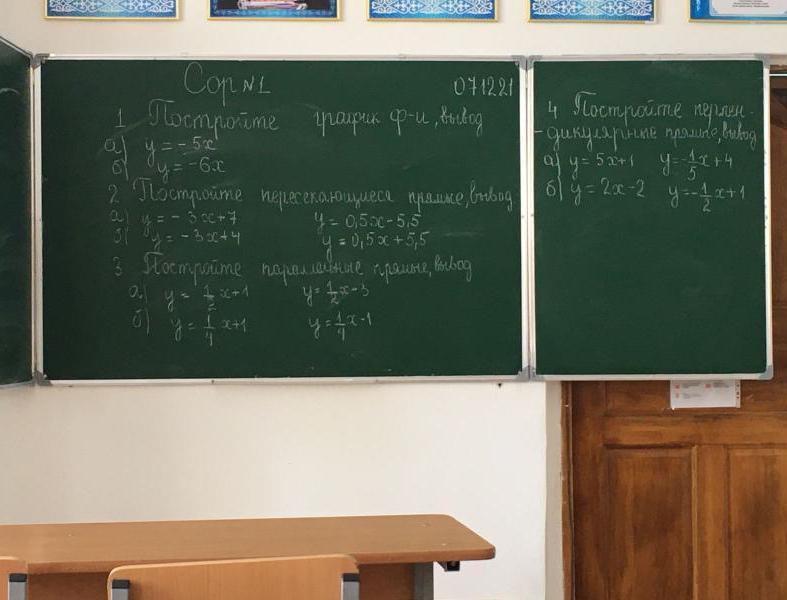 Сор №1 071221
1 Постройте график ф-и, вывод
а) y = -5x
б) y = -6x
2 Постройте пересекающиеся прямые, вывод
а) y = -3x+7 y = 0,5x-5,5
б) y = -3x+4 y = 0,5x+5,5
3 Постройте параллельные прямые, вывод
а) y = 1/2 x+1 y = 1/2 x-3
б) y = 1/4 x+1 y = 1/4 x-1
4 Постройте перпен-
-дикулярные прямые, вывод
а) y = 5x+1 y = -1/5 x+4
б) y = 2x-2 y = -1/2 x+1